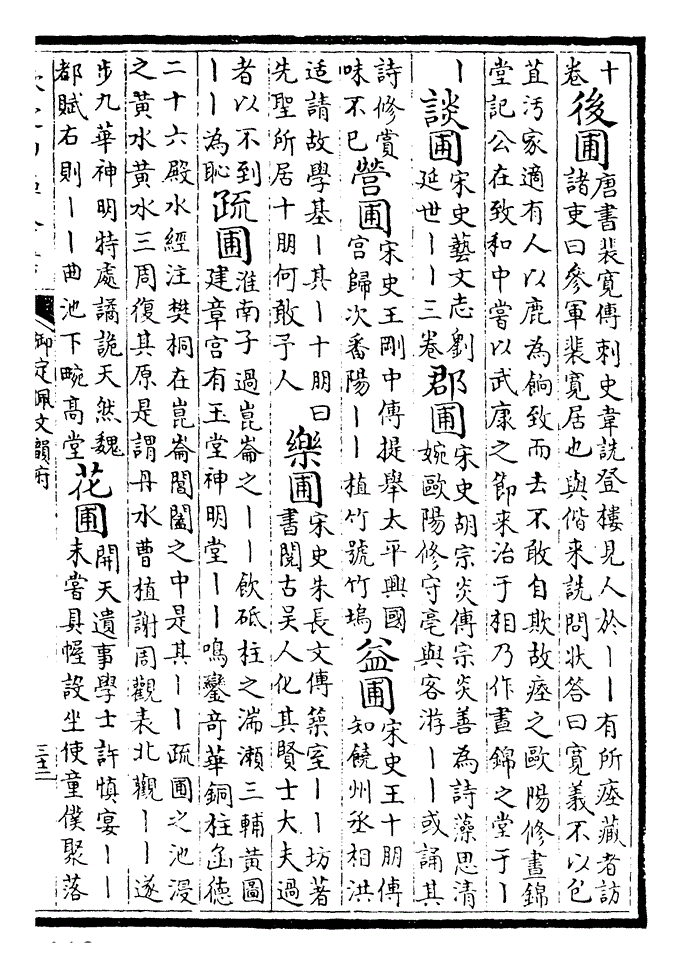 十
卷
後圃
唐書裴寛傳刺史韋詵登樓見人於丨丨有所瘞藏者訪
諸吏曰參軍裴寛居也與偕來詵問狀答曰寛義不以包
苴汚家適有人以鹿為餉致而去不敢自欺故瘞之歐陽修晝錦
堂記公在致和中嘗以武康之節来治于相乃作晝錦之堂于丨
丨
談圃
宋史藝文志劉
延世丨丨三卷
郡圃
宋史胡宗炎傳宗炎善為詩藻思清
婉歐陽修守亳與客游丨丨或誦其
詩修賞
味不已
營圃
宋史王剛中傳提舉太平興國
宫歸次番陽丨丨植竹號竹塢
益圃
宋史王十朋傳
知饒州丞相洪
适請故學基丨其丨十朋曰
先聖所居十朋何敢予人
樂圃
宋史朱長文傳築室丨丨坊著
書閱古吴人化其賢士大夫過
者以不到
丨丨為恥
疏圃
淮南子過崑崙之丨丨飲砥柱之湍瀬三輔黃圖
建章宫有玉堂神明堂丨丨鳴鑾竒華銅柱函德
二十六殿水經注樊桐在崑崙閶闔之中是其丨丨疏圃之池浸
之黃水黃水三周復其原是謂丹水曹植謝周觀表北觀丨丨遂
步九華神明特處譎詭天然魏
都賦右則丨丨曲池下畹高堂
花圃
開天遺事學士許慎宴丨丨
未嘗具幄設坐使童僕聚落
御定佩文韻府